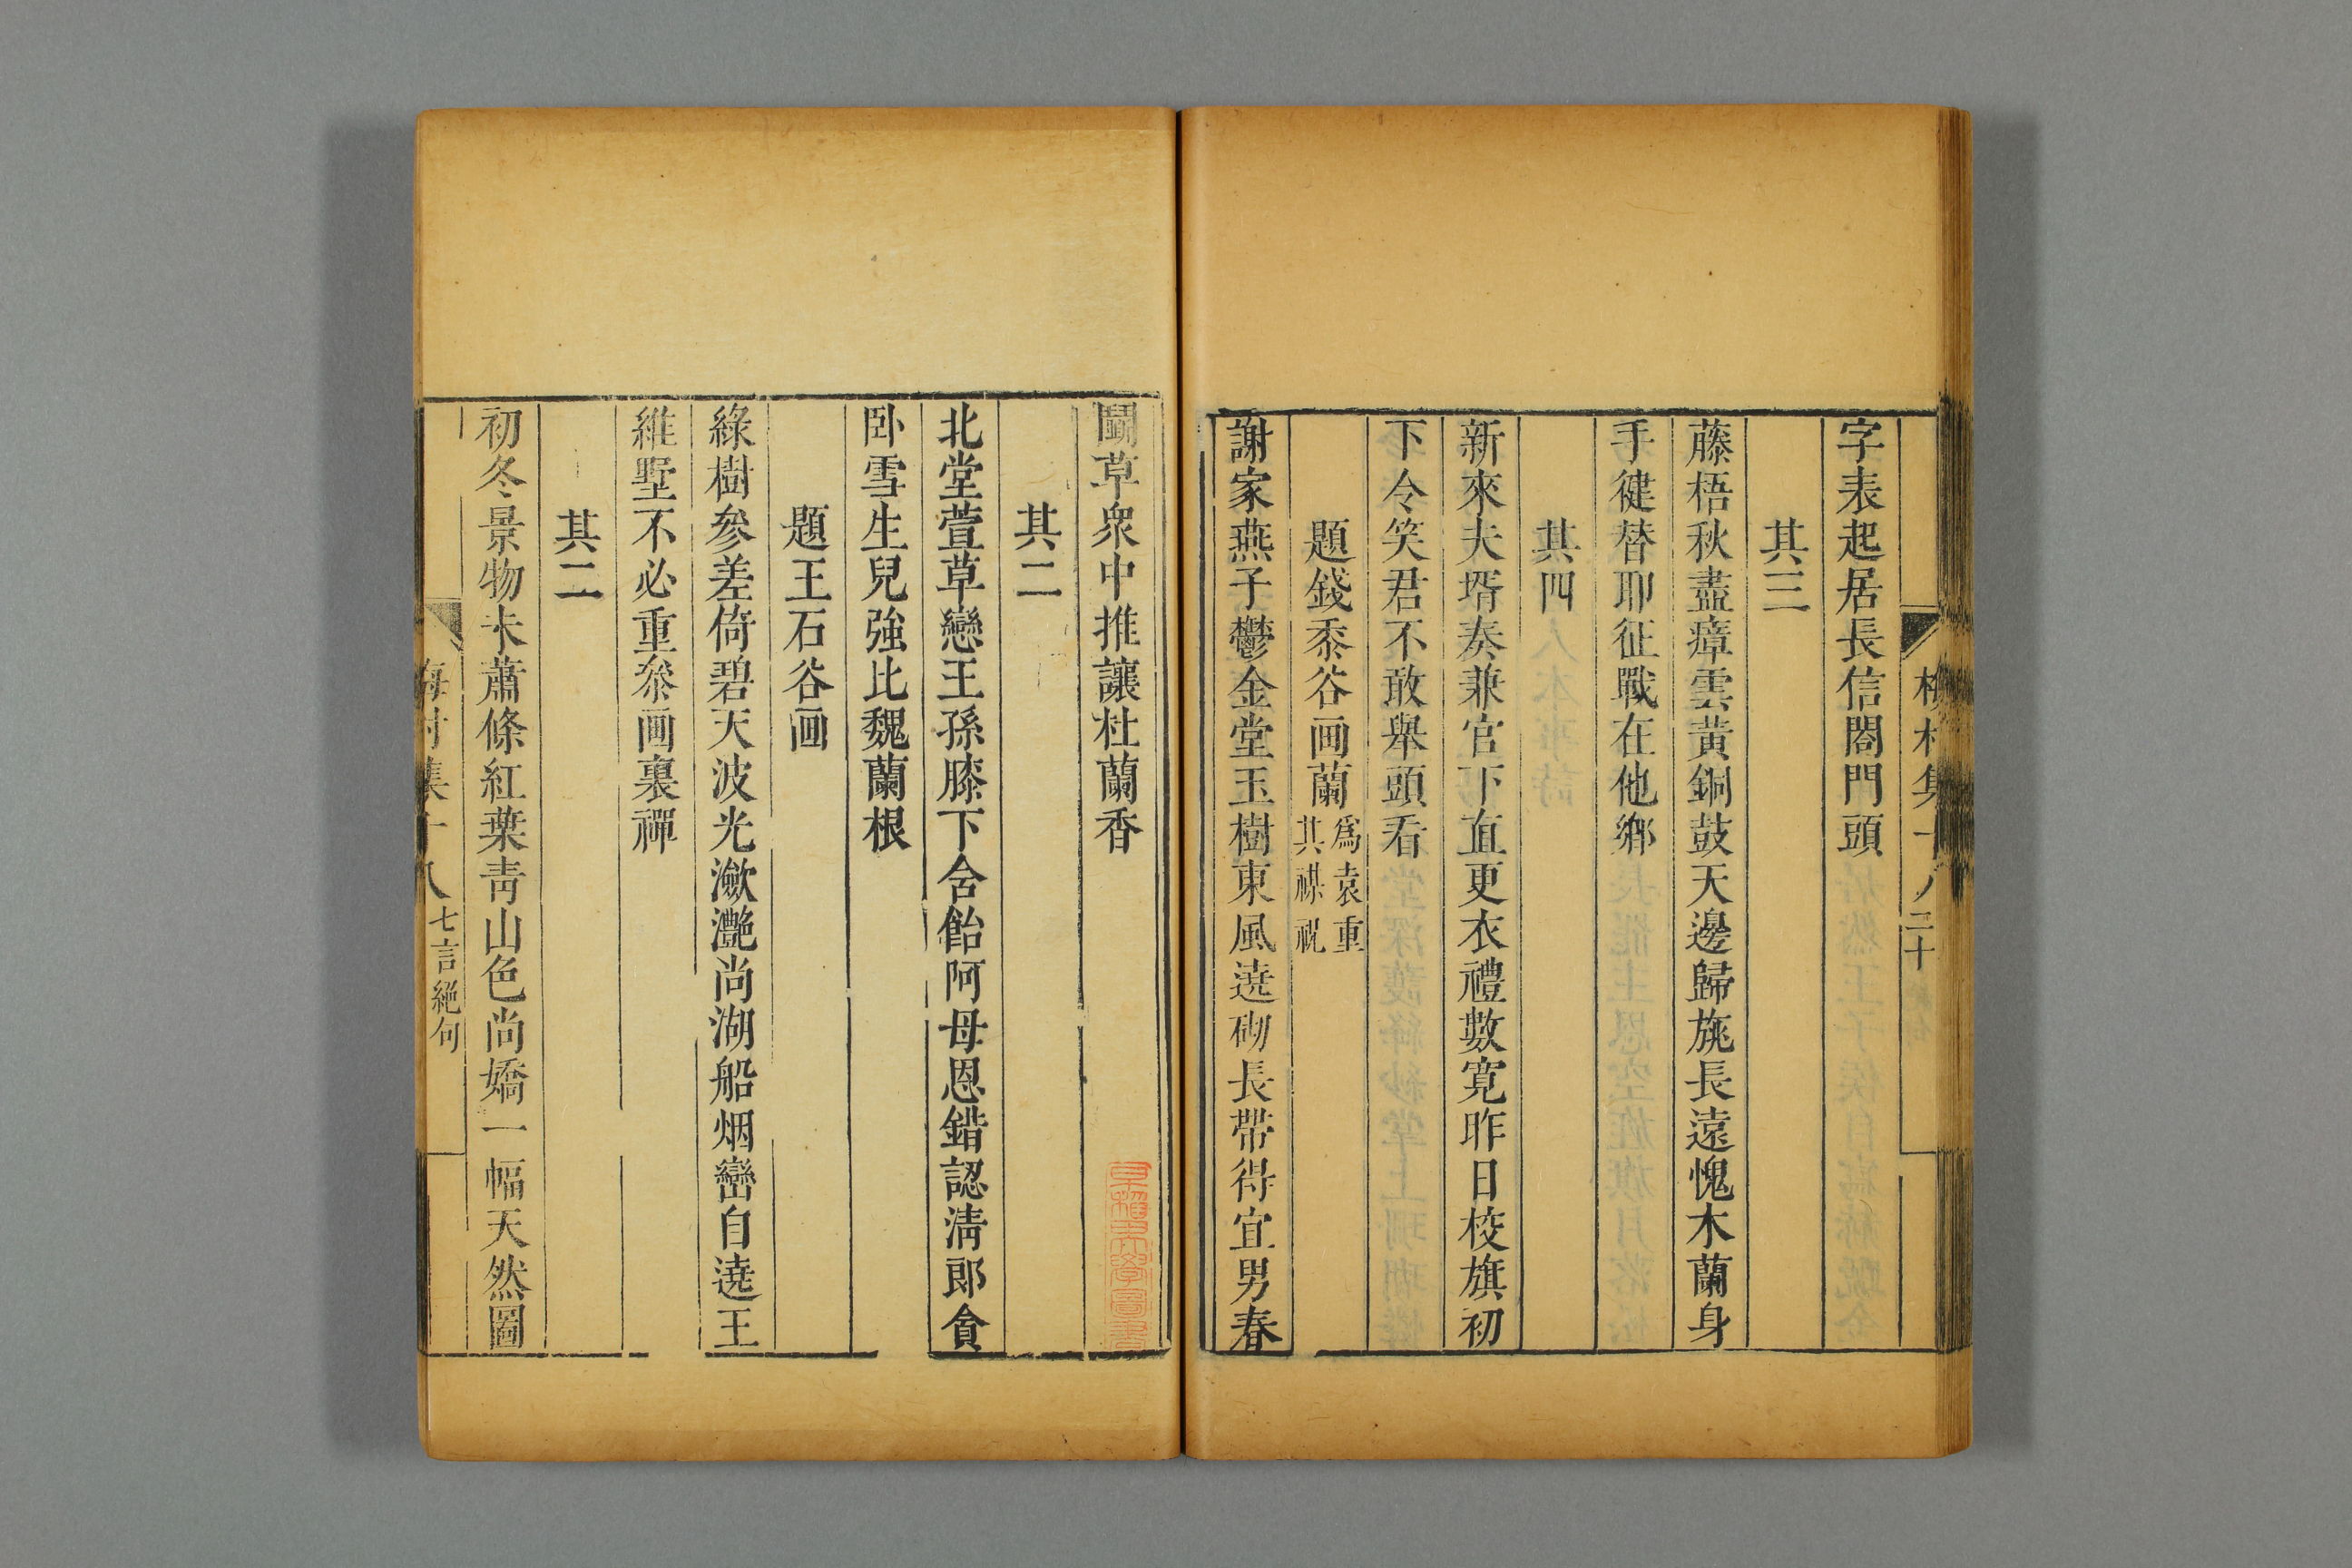 梅村集十八 二十
字表起居長信閤門頭
其三
藤梧秋盡瘴雲黃銅鼓天邊歸旐長遠愧木蘭身
手健替耶征戰在他鄉
其四
新來夫壻奏兼官下直更衣禮數寬昨日校旗初
下令笑君不敢舉頭看
題錢黍谷画蘭
爲袁重
其祺祝
謝家燕子鬱金堂玉樹東風遶砌長帶得宜男春
鬭草衆中推讓杜蘭香
其二
北堂萱草戀王孫膝下含飴阿母恩錯認淸郎貪
卧雪生兒強比魏蘭根
題王石谷画
綠樹參差倚碧天波光瀲灧尚湖船烟巒自遶王
維墅不必重叅画裏禪
其二
初冬景物未蕭條紅葉靑山色尚嬌一幅天然圖
梅村集十八 七言絕句
早稻田大學圖書